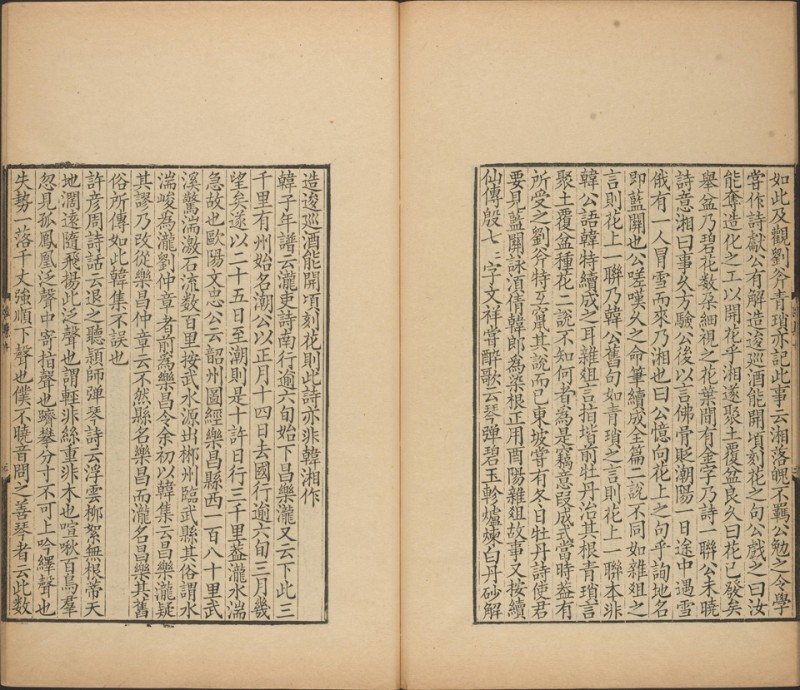 如此及觀劉斧青瑣亦記此事云湘落魄不羈公勉之令學
嘗作詩獻公有解造逡巡酒能開頃刻花之句公戲之曰汝
能奪造化之工以開花乎湘遂聚土覆盆良久曰花已發矣
舉盆乃碧花數朶細視之花葉間有金字乃詩一聯公未曉
詩意湘曰事久方驗公後以言佛骨貶潮陽一日途中遇雪
俄有一人冒雪而來乃湘也曰公憶向花上之句乎詢地名
即藍關也公嗟嘆久之命筆續成全篇二說不同如雜俎之
言則花上一聯乃韓公舊句如青瑣之言則花上一聯本非
韓公語韓特續成之耳雜俎言指堦前牡丹治其根青瑣言
聚土覆盆種花二說不知何者為是竊意段成式當時蓋有
所受之劉斧特互竄其說而已東坡嘗有冬日牡丹詩使君
要見藍關詠湏倩韓郎為染根正用酉陽雜俎故事又按續
仙傳殷七七字文祥嘗醉歌云琴彈碧玉軫爐煉白丹砂解
造逡巡酒能開頃刻花則此詩亦非韓湘作
韓子年譜云瀧吏詩南行逾六旬始下昌樂瀧又云下此三
千里有州始名潮公以正月十四日去國行逾六旬三月幾
望矣遂以二十五日至潮則是十許日行三千里蓋瀧水湍
急故也歐陽文忠公云韶州圖經樂昌縣西一百八十里武
溪驚湍激石流數百里按武水源出郴州臨武縣其俗謂水
湍峻為瀧劉仲章者前為樂昌令余初以韓集云昌樂瀧疑
其謬乃改從樂昌仲章云不然縣名樂昌而瀧名昌樂其舊
俗所傳如此韓集不誤也
許彦周詩話云退之聽穎師彈琴詩云浮雲柳絮無根帝天
地濶遠隨飛揚此泛聲也謂輕非絲重非木也喧啾百鳥羣
忽見孤鳳凰泛聲中寄指聲也躋攀分寸不可上吟繹聲也
失勢一落千丈強順下聲也僕不曉音問之善琴者云此數